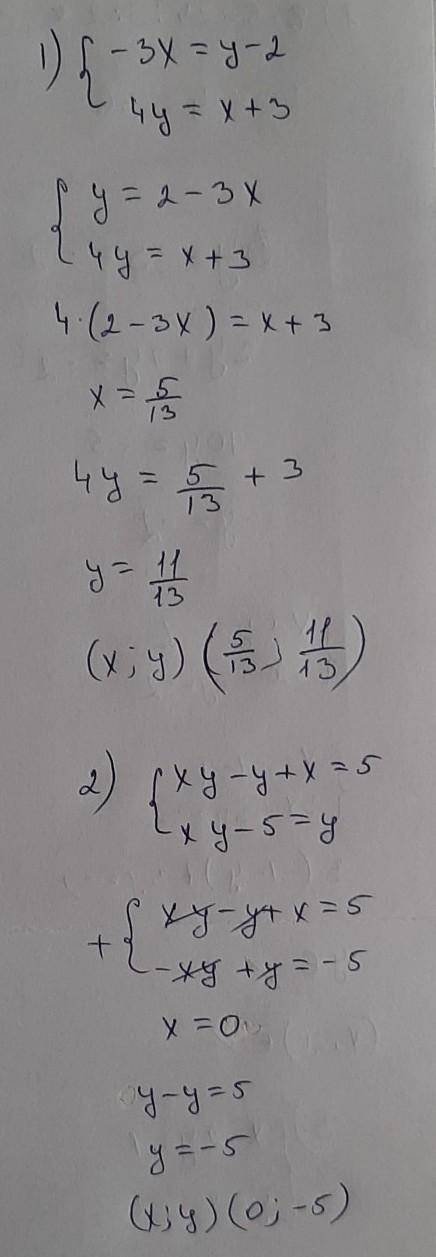 1) { -3x = y - 2
4y = x + 3
{ y = 2 - 3x
4y = x + 3
4·(2 - 3x) = x + 3
x = 5/13
4y = 5/13 + 3
y = 11/13
(x; y) (5/13; 11/13)
2) { xy - y + x = 5
xy - 5 = y
+ { xy - y + x = 5
-xy + y = -5
x = 0
y - y = 5
y = -5
(x; y) (0; -5)